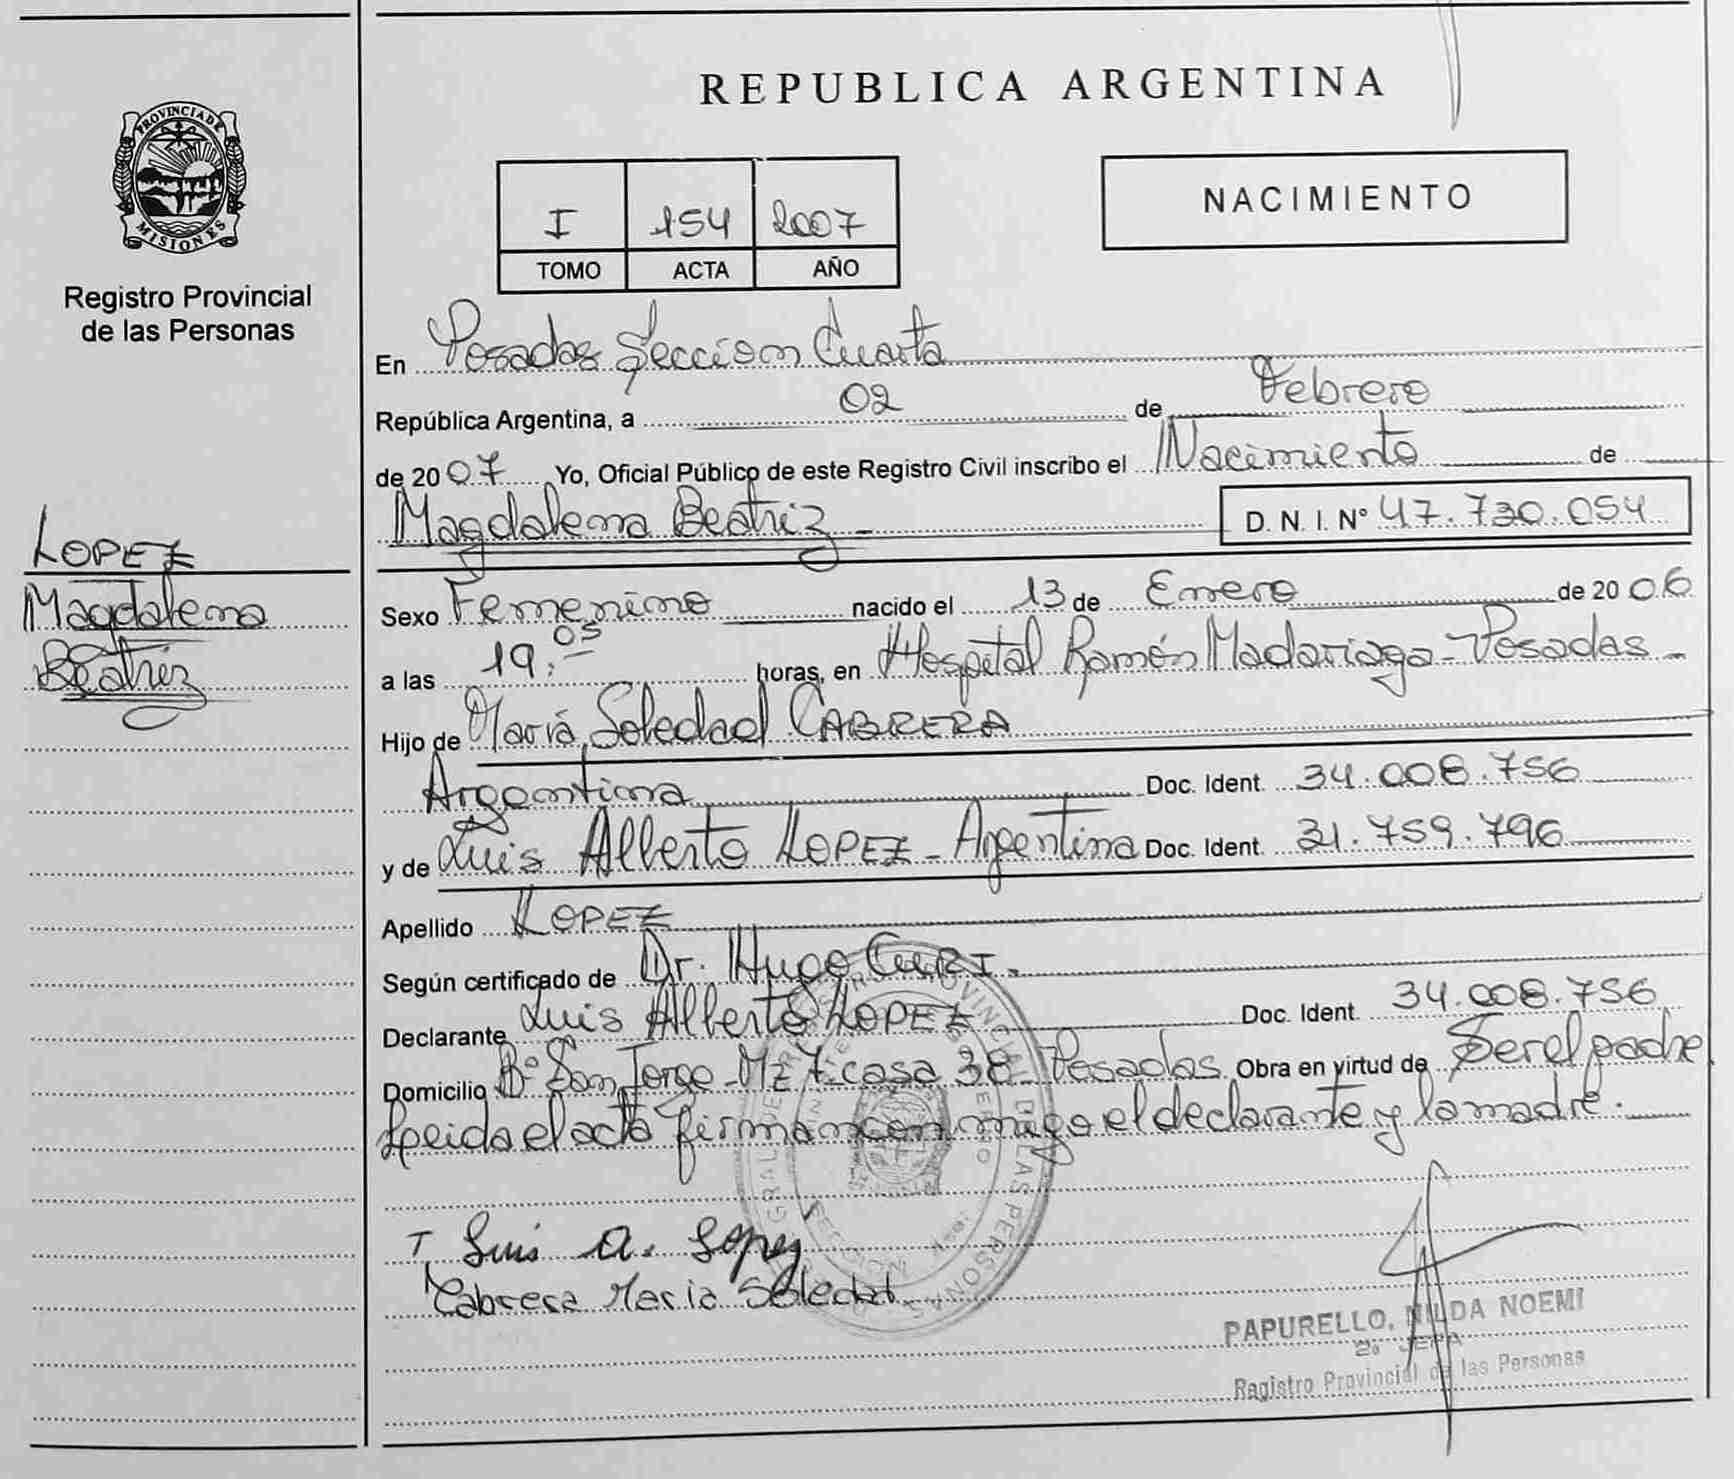 REPUBLICA ARGENTINA
PROVINCIA DE
MISIONES
Registro Provincial
de las Personas
I 154 2007
TOMO ACTA AÑO
NACIMIENTO
En Posadas Seccion Cuarta
República Argentina, a 02 de Febrero
de 2007 Yo, Oficial Público de este Registro Civil inscribo el Nacimiento de
Magdalena Beatriz D. N. I. N° 47.730.054
LOPEZ
Magdalena
Beatriz
Sexo Femenino nacido el 13 de Enero de 2006
a las 19:05 horas, en Hospital Ramón Madariaga - Posadas -
Hijo de María Soledad CABRERA
Argentina Doc. Ident. 34.008.756
y de Luis Alberto LOPEZ - Argentina Doc. Ident. 31.759.796
Apellido LOPEZ
Según certificado de Dr. Hugo CURI.
Declarante Luis Alberto LOPEZ Doc. Ident. 34.008.756
Domicilio B° San Jorge - Mz 7 casa 38 - Posadas Obra en virtud de Ser el padre
Leida el acta firman conmigo el declarante y la madre.
T Luis A. Lopez
Cabrera Maria Soledad
PAPURELLO, NILDA NOEMI
2° JEFA
Registro Provincial de las Personas